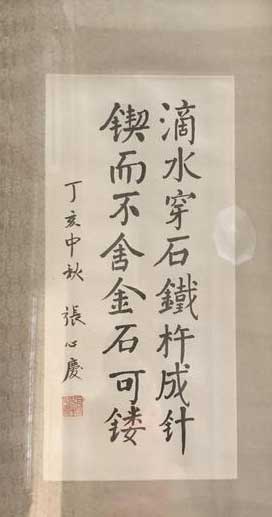 滴水穿石鐵杵成针
鍥而不舍金石可镂
丁亥中秋 張心慶